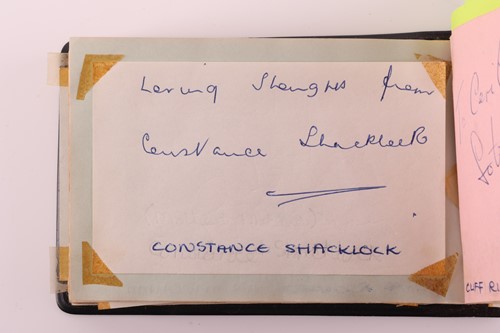 Loving Thoughts from
Constance Shacklock
CONSTANCE SHACKLOCK
CLIFF RI